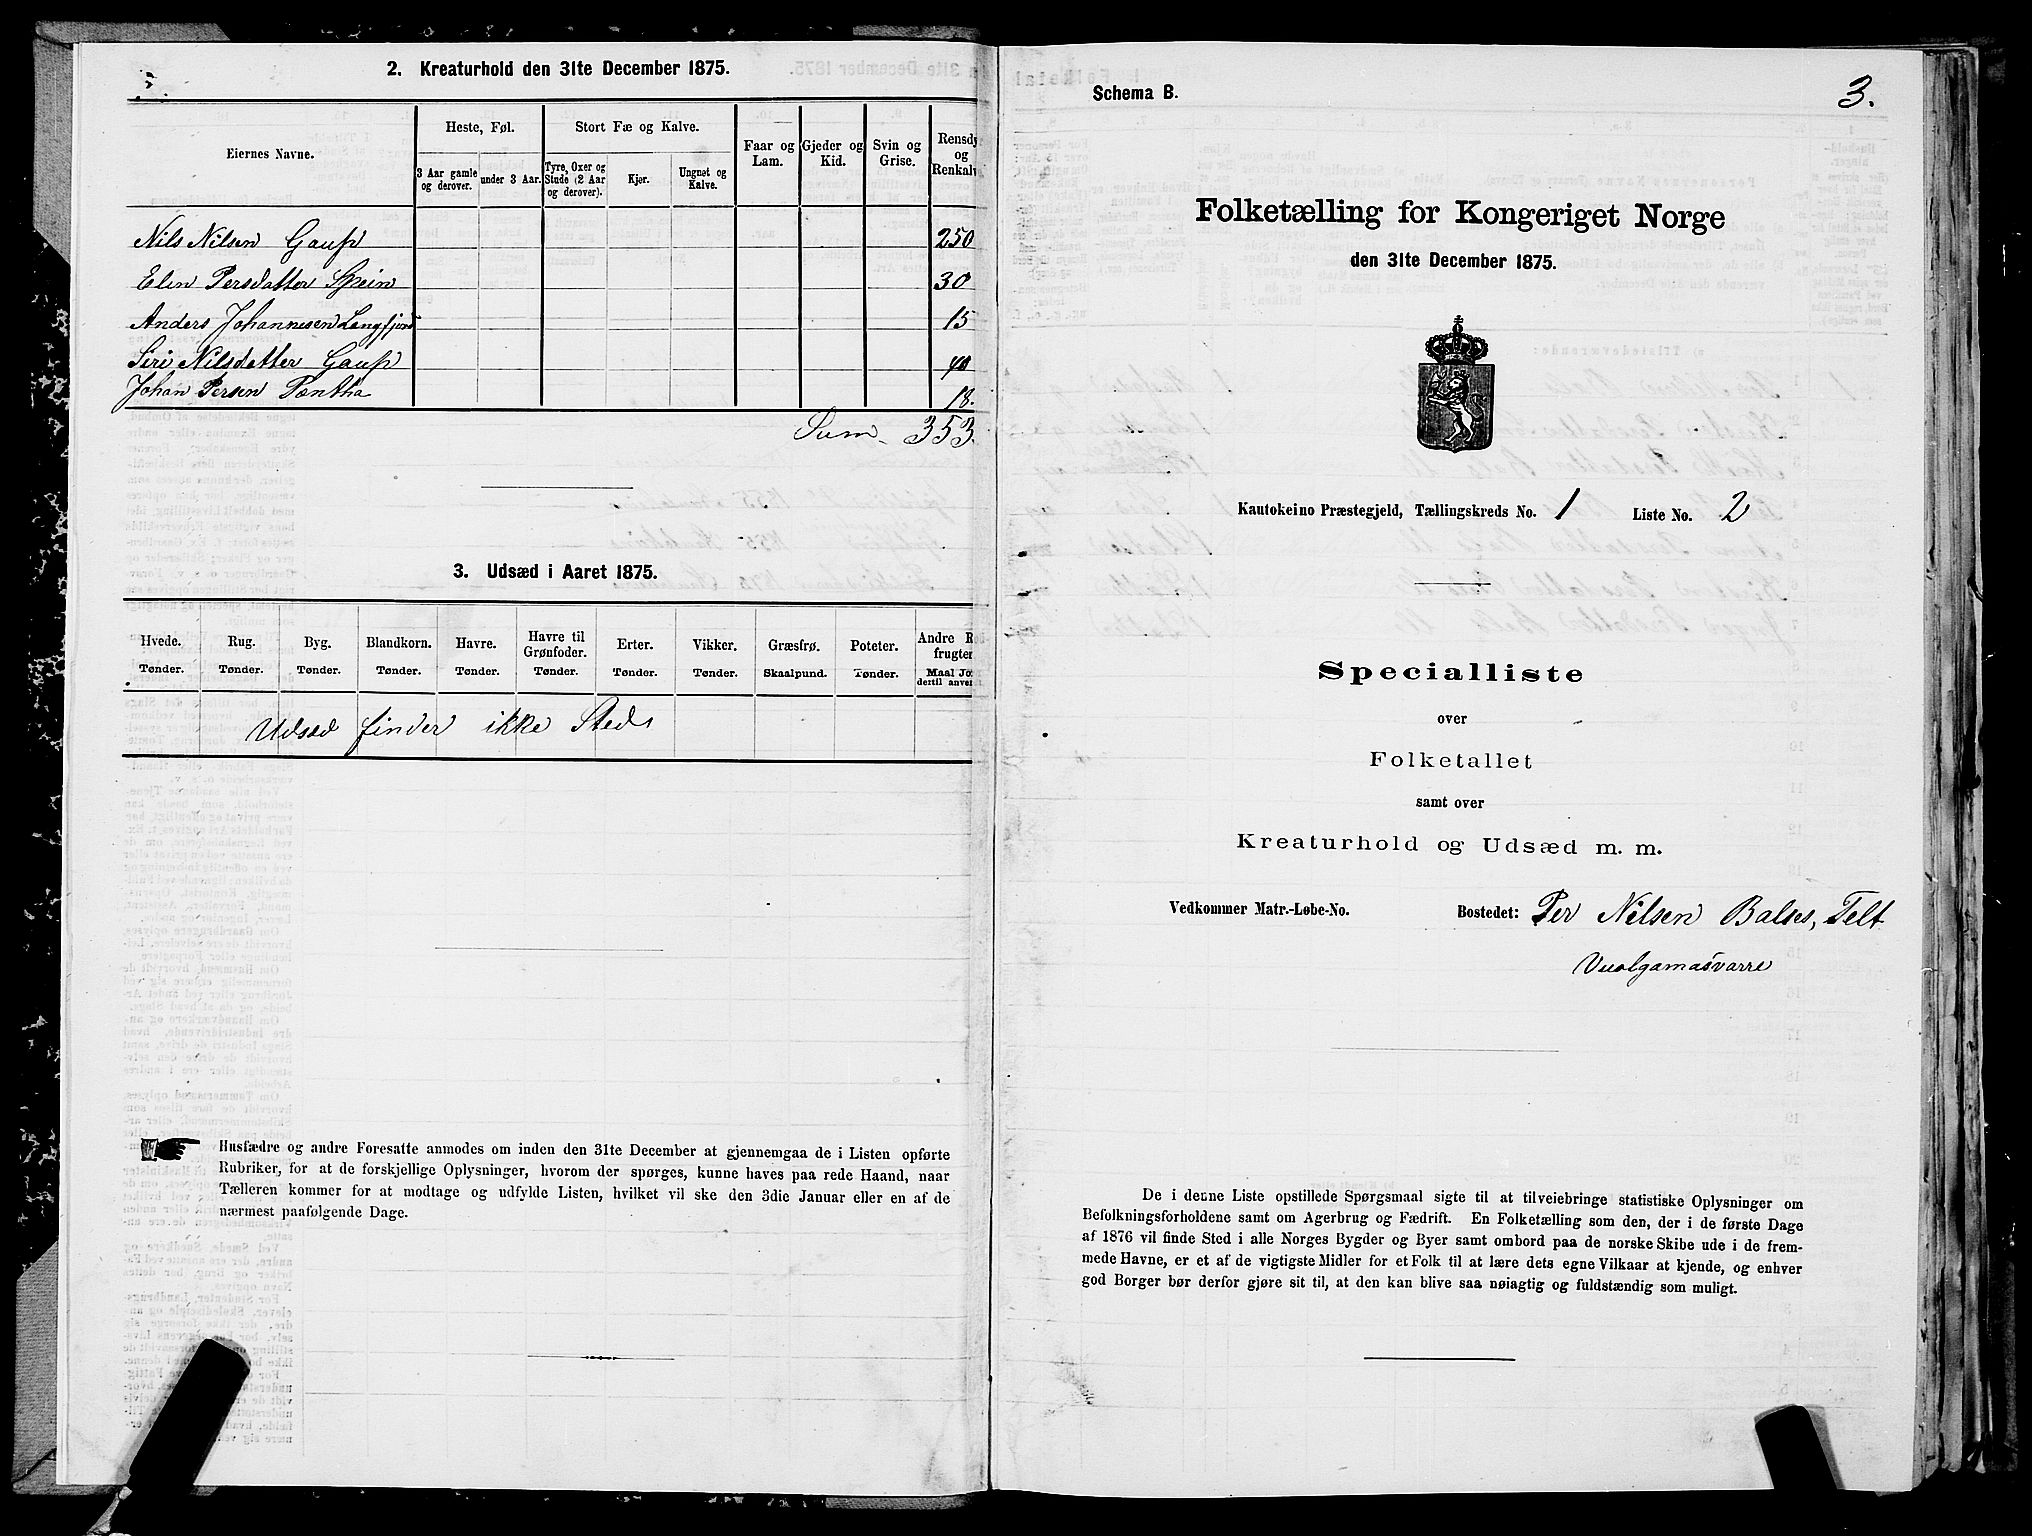 2. Kreaturhold den 31te December 1875.
Eiernes Navne.
Heste, Føl.
Stort Fæ og Kalve.
Faar og Lam.
Gjeder og Kid.
Svin og Grise.
Rensdy
og
Renkalv
3 Aar gamle og derover.
under 3 Aar.
Tyre, Oxer og Stude (2 Aar og derover).
Kjør.
Ungnøt og Kalve.
Nils Nilsen Gaup 250
Elen Persdatter Spein 30
Anders Johannesen Langfjord 15
Siri Nilsdatter Gaup 40
Johan Persen Pæntha 18.
Sum 353
3. Udsæd i Aaret 1875.
Hvede. Rug. Byg. Blandkorn. Havre. Havre til Grønfoder. Erter. Vikker. Græsfrø. Poteter. Andre Ro
frugter
Tønder. Tønder. Tønder. Tønder. Tønder. Tønder. Tønder. Tønder. Skaalpund. Tønder. Maal Jor
dertil anven
Udsæd finder ikke Steds
Husfædre og andre Foresatte anmodes om inden den 31te December at gjennemgaa de i Listen opførte
Rubriker, for at de forskjellige Oplysninger, hvorom der spørges, kunne haves paa rede Haand, naar
Tælleren kommer for at modtage og udfylde Listen, hvilket vil ske den 3die Januar eller en af de
nærmest paafølgende Dage.
Schema B.
3.
Folketælling for Kongeriget Norge
den 31te December 1875.
Kautokeino Præstegjeld, Tællingskreds No. 1 Liste No. 2
Specialliste
over
Folketallet
samt over
Kreaturhold og Udsæd m. m.
Vedkommer Matr.-Løbe-No. Bostedet: Per Nilsen Balses, Telt
Vuolgamasvarre
De i denne Liste opstillede Spørgsmaal sigte til at tilveiebringe statistiske Oplysninger om
Befolkningsforholdene samt om Agerbrug og Fædrift. En Folketælling som den, der i de første Dage
af 1876 vil finde Sted i alle Norges Bygder og Byer samt ombord paa de norske Skibe ude i de frem-
mede Havne, er et af de vigtigste Midler for et Folk til at lære dets egne Vilkaar at kjende, og enhver
god Borger bør derfor gjøre sit til, at den kan blive saa nøiagtig og fuldstændig som muligt.